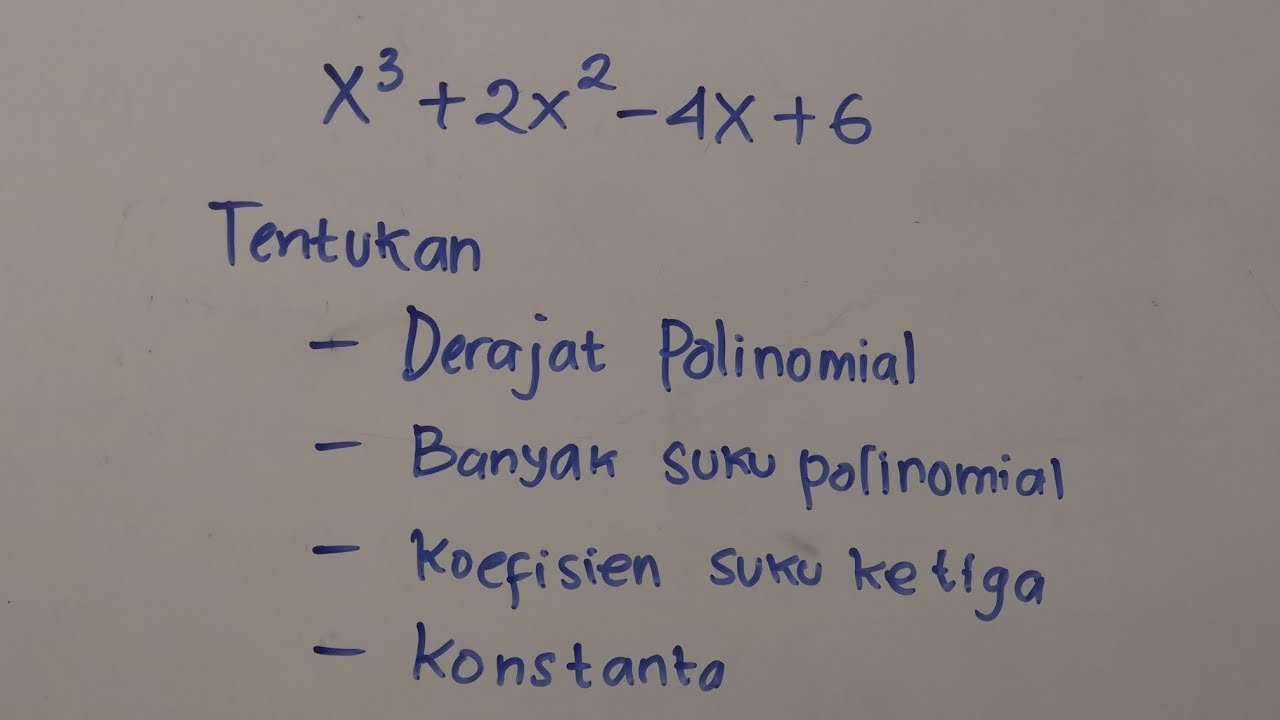 x³ + 2x² - 4x + 6
Tentukan
- Derajat Polinomial
- Banyak suku polinomial
- Koefisien suku ketiga
- Konstanta